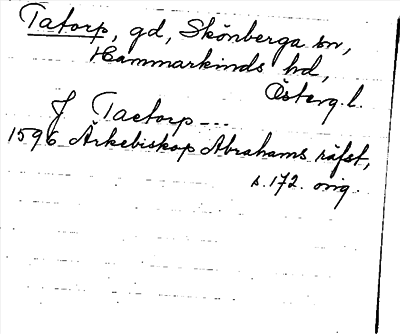 Tatorp, gd, Skönberga sn,
Hammarkinds hd,
Österg. l.
J Taetorp ---
1596 Ärkebiskop Abrahams räfst,
s. 172. orig.